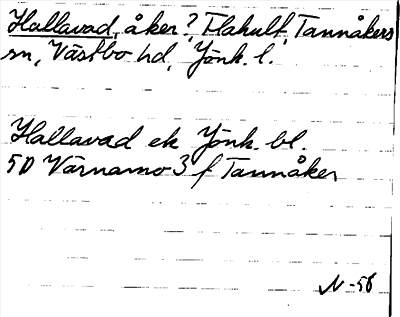 Hallavad, åker? Flahult, Tannåkers
sn, Västbo hd, Jönk. l.
Hallavad ek Jönk. bl.
5D Värnamo 3 f Tannåker
N -56